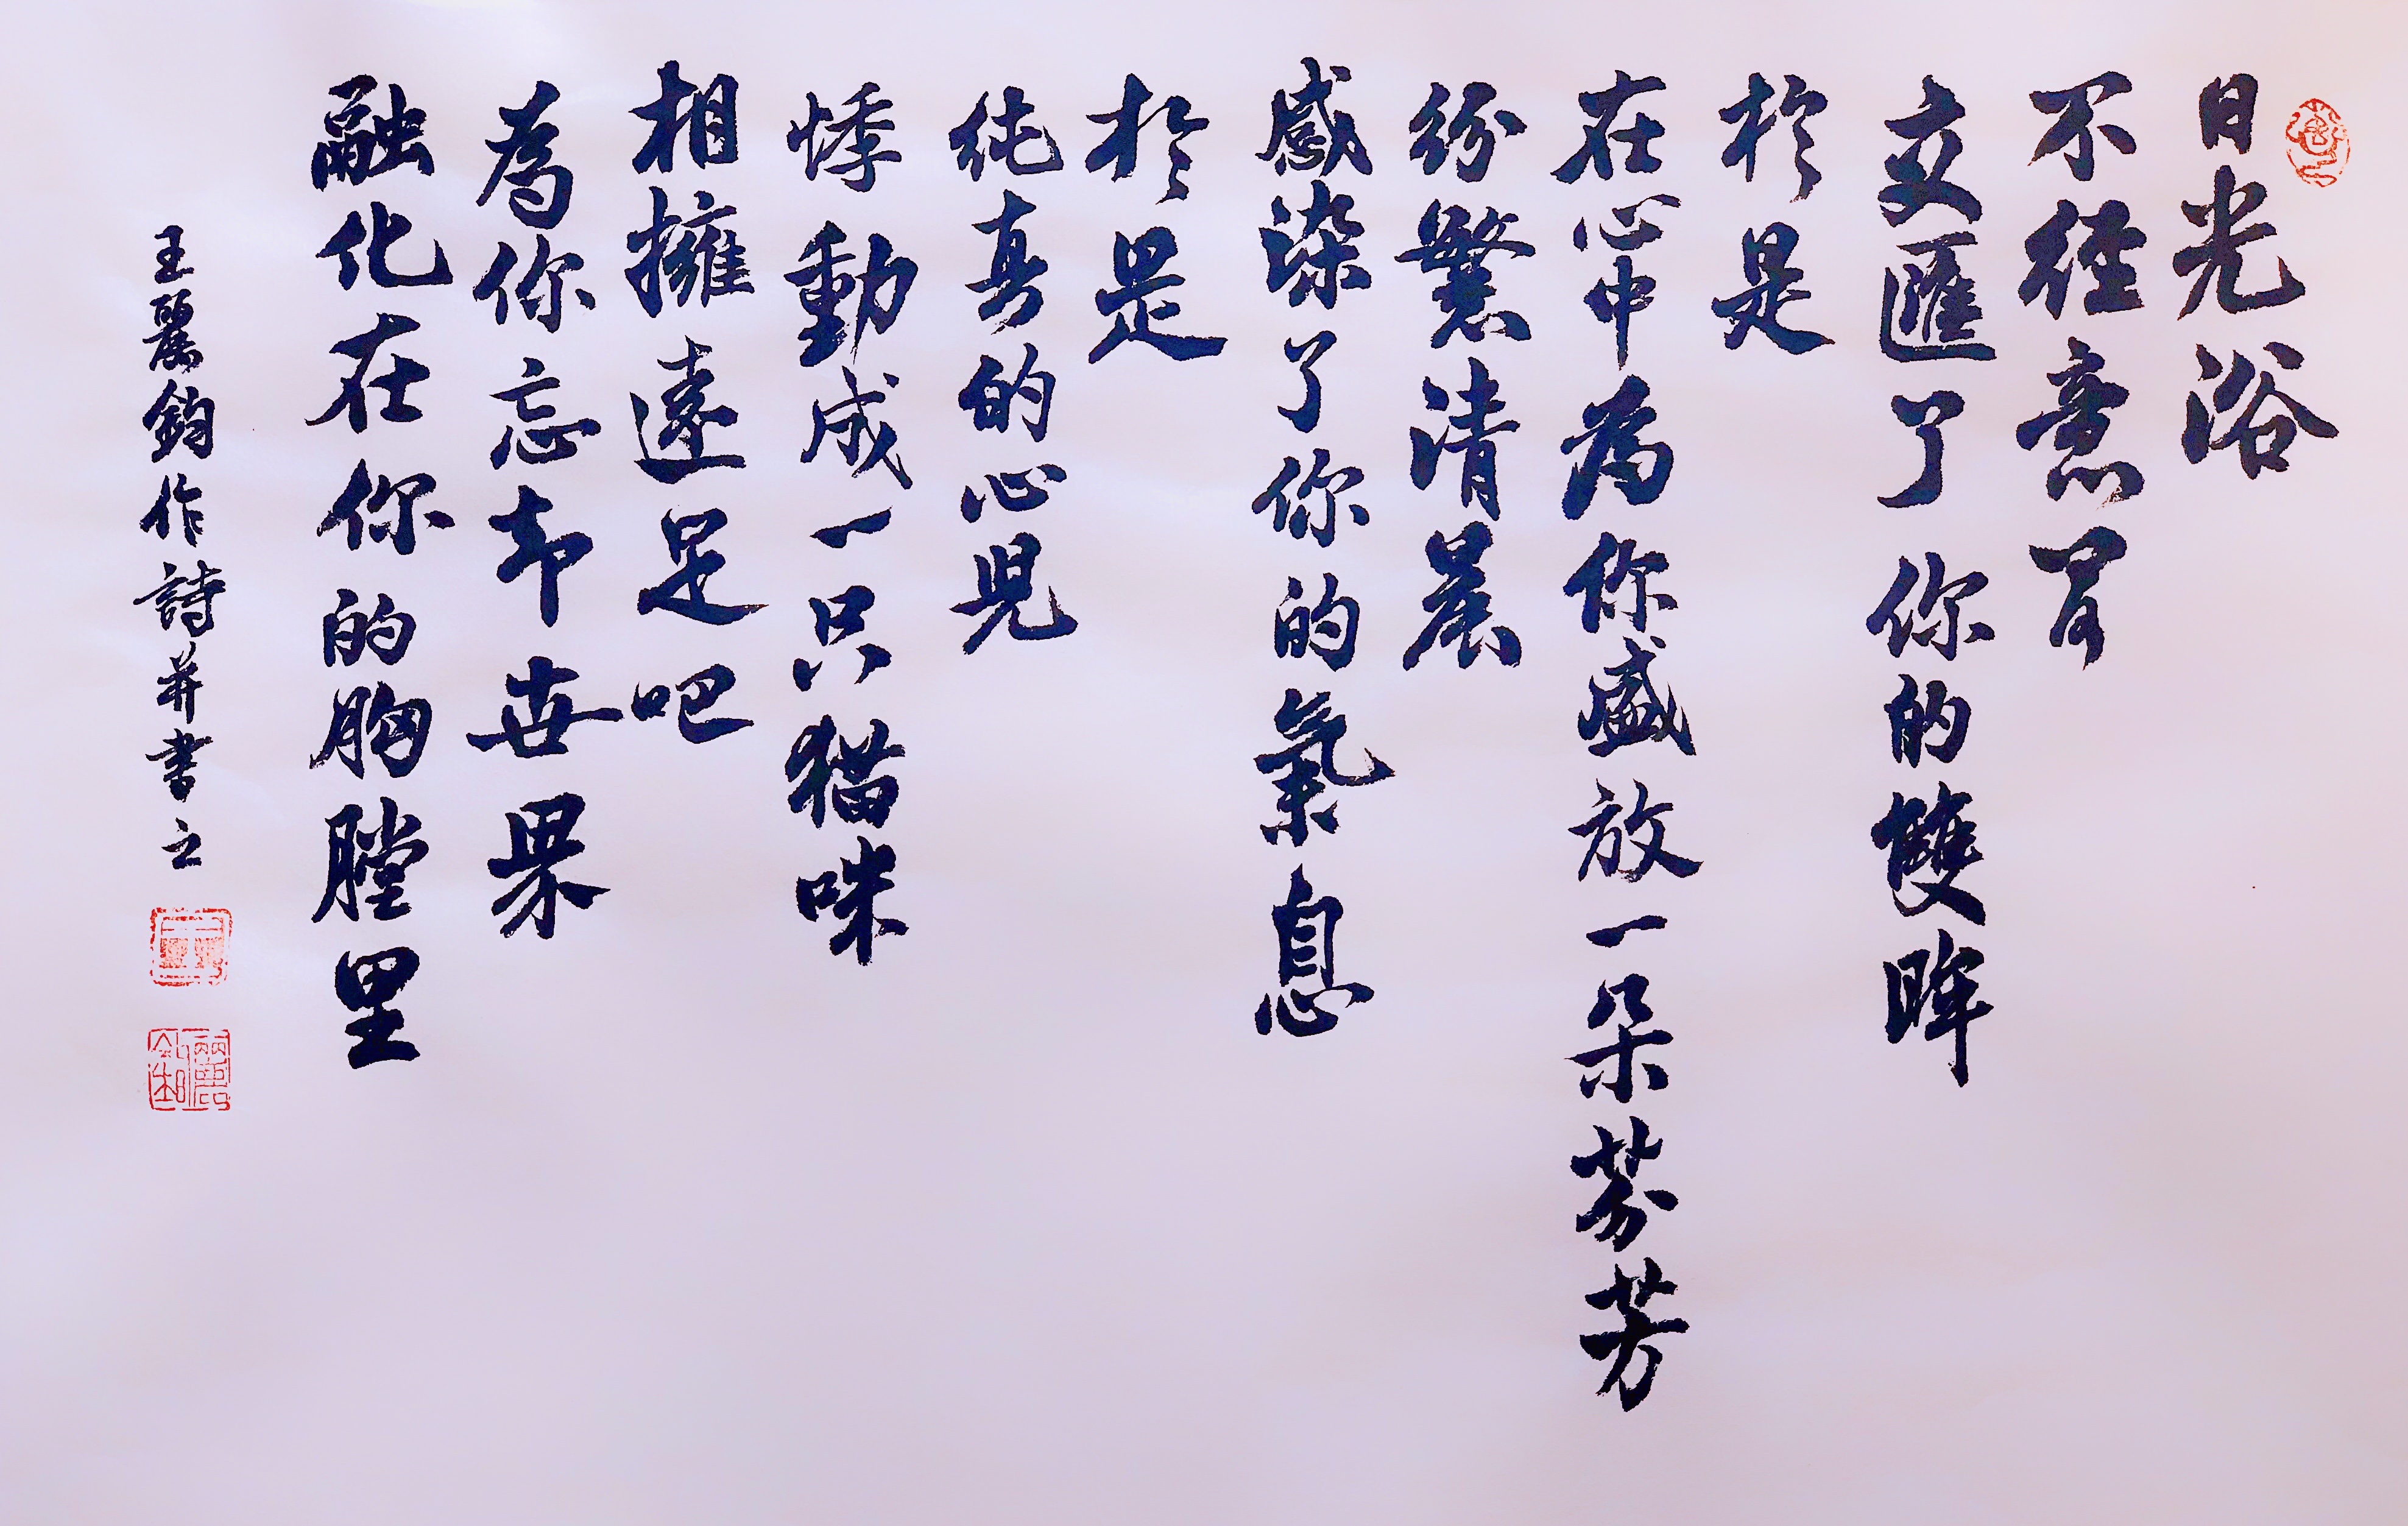 日光浴
不經意間
交匯了你的雙眸
於是
在心中為你盛放一朵芬芳
紛繁清晨
感染了你的氣息
於是
純真的心兒
悸動成一只猫咪
相擁遠足吧
為你忘却世界
融化在你的胸膛里
王麗鈞作詩并書之